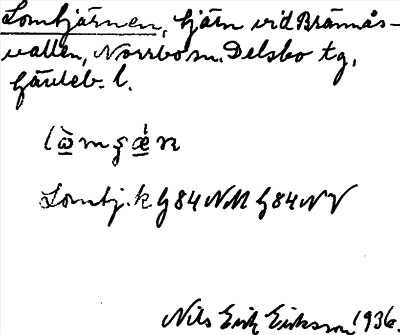 Lomtjärnen, tjärn vid Brännås-
vallen, Norrbo sn. Delsbo tg,
Gävleb. l.
lo̲mʂæ̲n
Lomtj. k G84NM G84NV
Nils Erik Eriksson 1936.